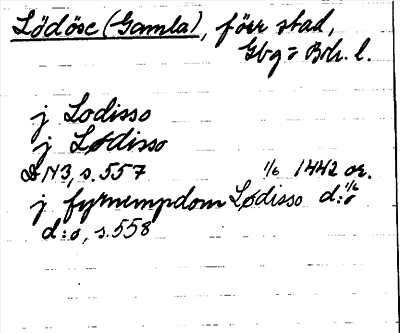 Lödöse (Gamla), förr stad,
Gbg o Boh. l.
j Lodisso
j Lødisso
DN 3, s. 557 1/6 1442 or.
j fyrnempdom Lødisso d:o 1/6
d:o, s. 558